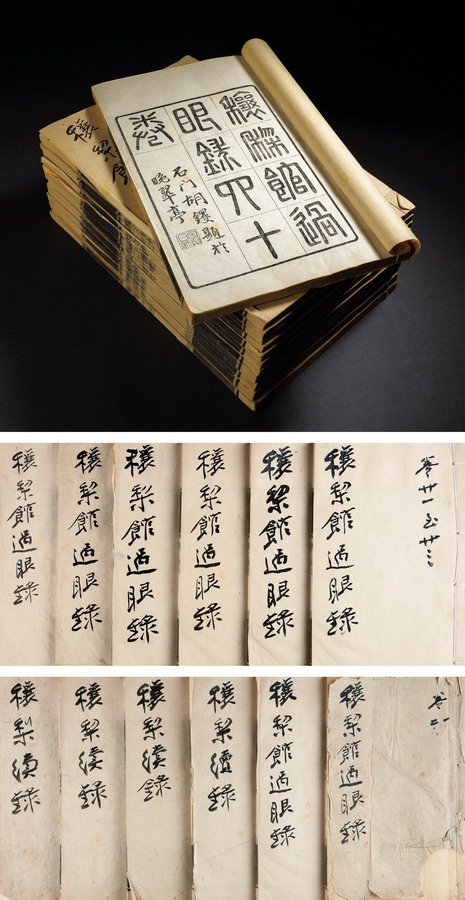 穰梨館過
眼錄四十
卷
石門胡钁題於
晚翠亭
穰梨館
卷廿一至廿三
穰梨館過眼錄
穰梨館過眼錄
穰梨館過眼錄
穰梨館過眼錄
穰梨館過眼錄
穰梨館過眼錄
穰梨館過眼錄
穰梨館過眼錄
穰梨續錄
穰梨續錄
穰梨續錄
穰梨續錄